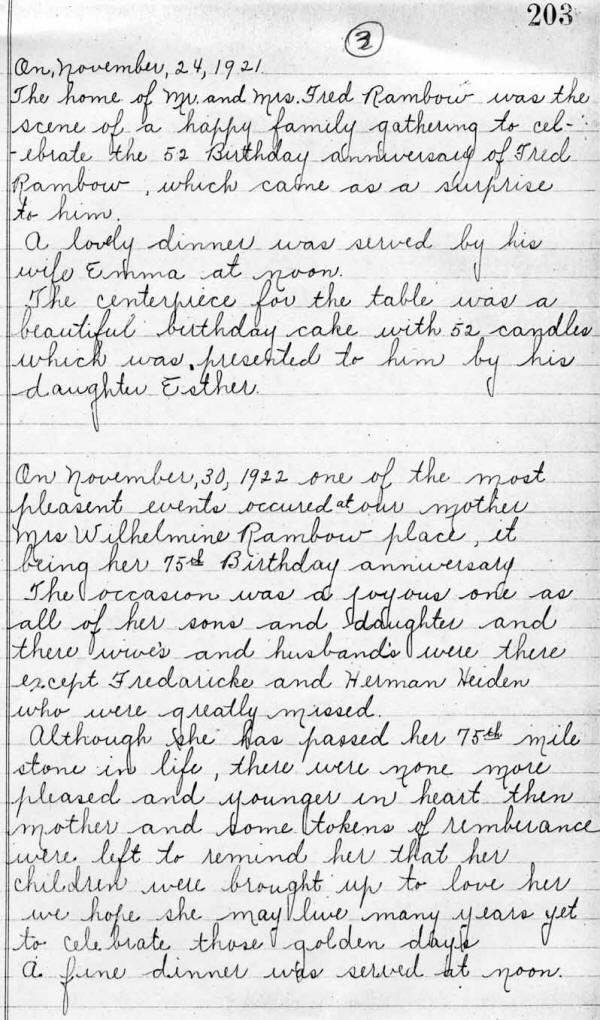 203
3
On, November, 24, 1921.
The home of Mr. and Mrs. Fred Rambow was the
scene of a happy family gathering to cel-
-ebrate the 52 Birthday anniversary of Fred
Rambow, which came as a surprise
to him.
A lovely dinner was served by his
wife Emma at noon.
The centerpiece for the table was a
beautiful birthday cake with 52 candles
which was presented to him by his
daughter Esther.
On November, 30, 1922 one of the most
pleasent events occured at our mother
Mrs Wilhelmine Rambow place, it
being her 75th Birthday anniversary
The occasion was a joyous one as
all of her sons and daughter and
there wive's and husband's were there
except Fredaricke and Herman Heiden
who were greatly missed.
Although she has passed her 75th mile
stone in life, there were none more
pleased and younger in heart then
mother and some tokens of remberance
were left to remind her that her
children were brought up to love her
we hope she may live many years yet
to celebrate those golden days
A fine dinner was served at noon.